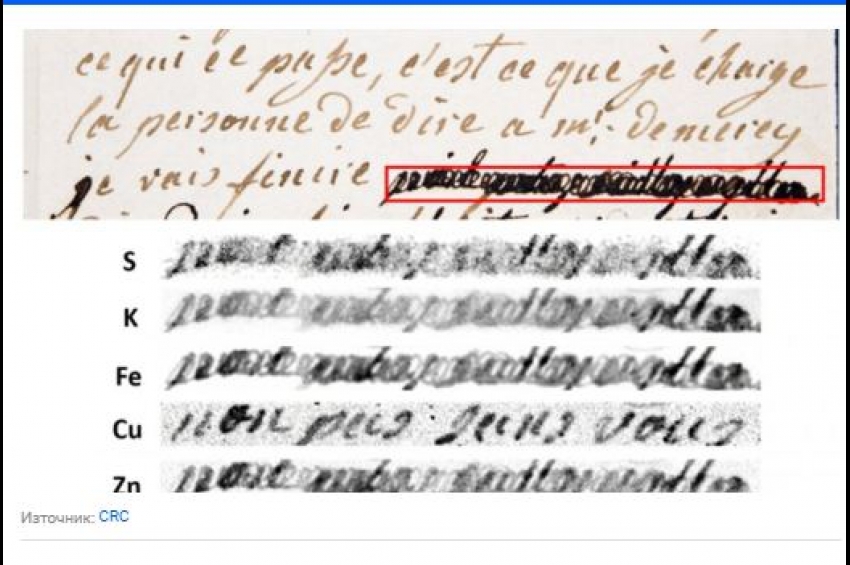 ce qui ce passe, c'est ce que je charge
la personne de dire a mr. de mercy
je vais finire
S
K
Fe
Cu non pas sans vous
Zn
Източник: CRC